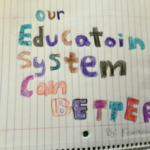 our
Educatoin
System
Can
BETTER
By: